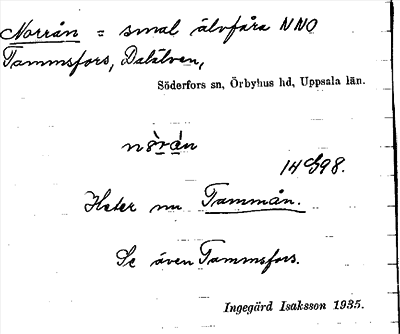 Norrån = smal älvfåra NNO
Tammsfors, Dalälven,
Söderfors sn, Örbyhus hd, Uppsala län.
Heter nu Tammån.
Se även Tammsfors.
Ingegärd Isaksson 1935.